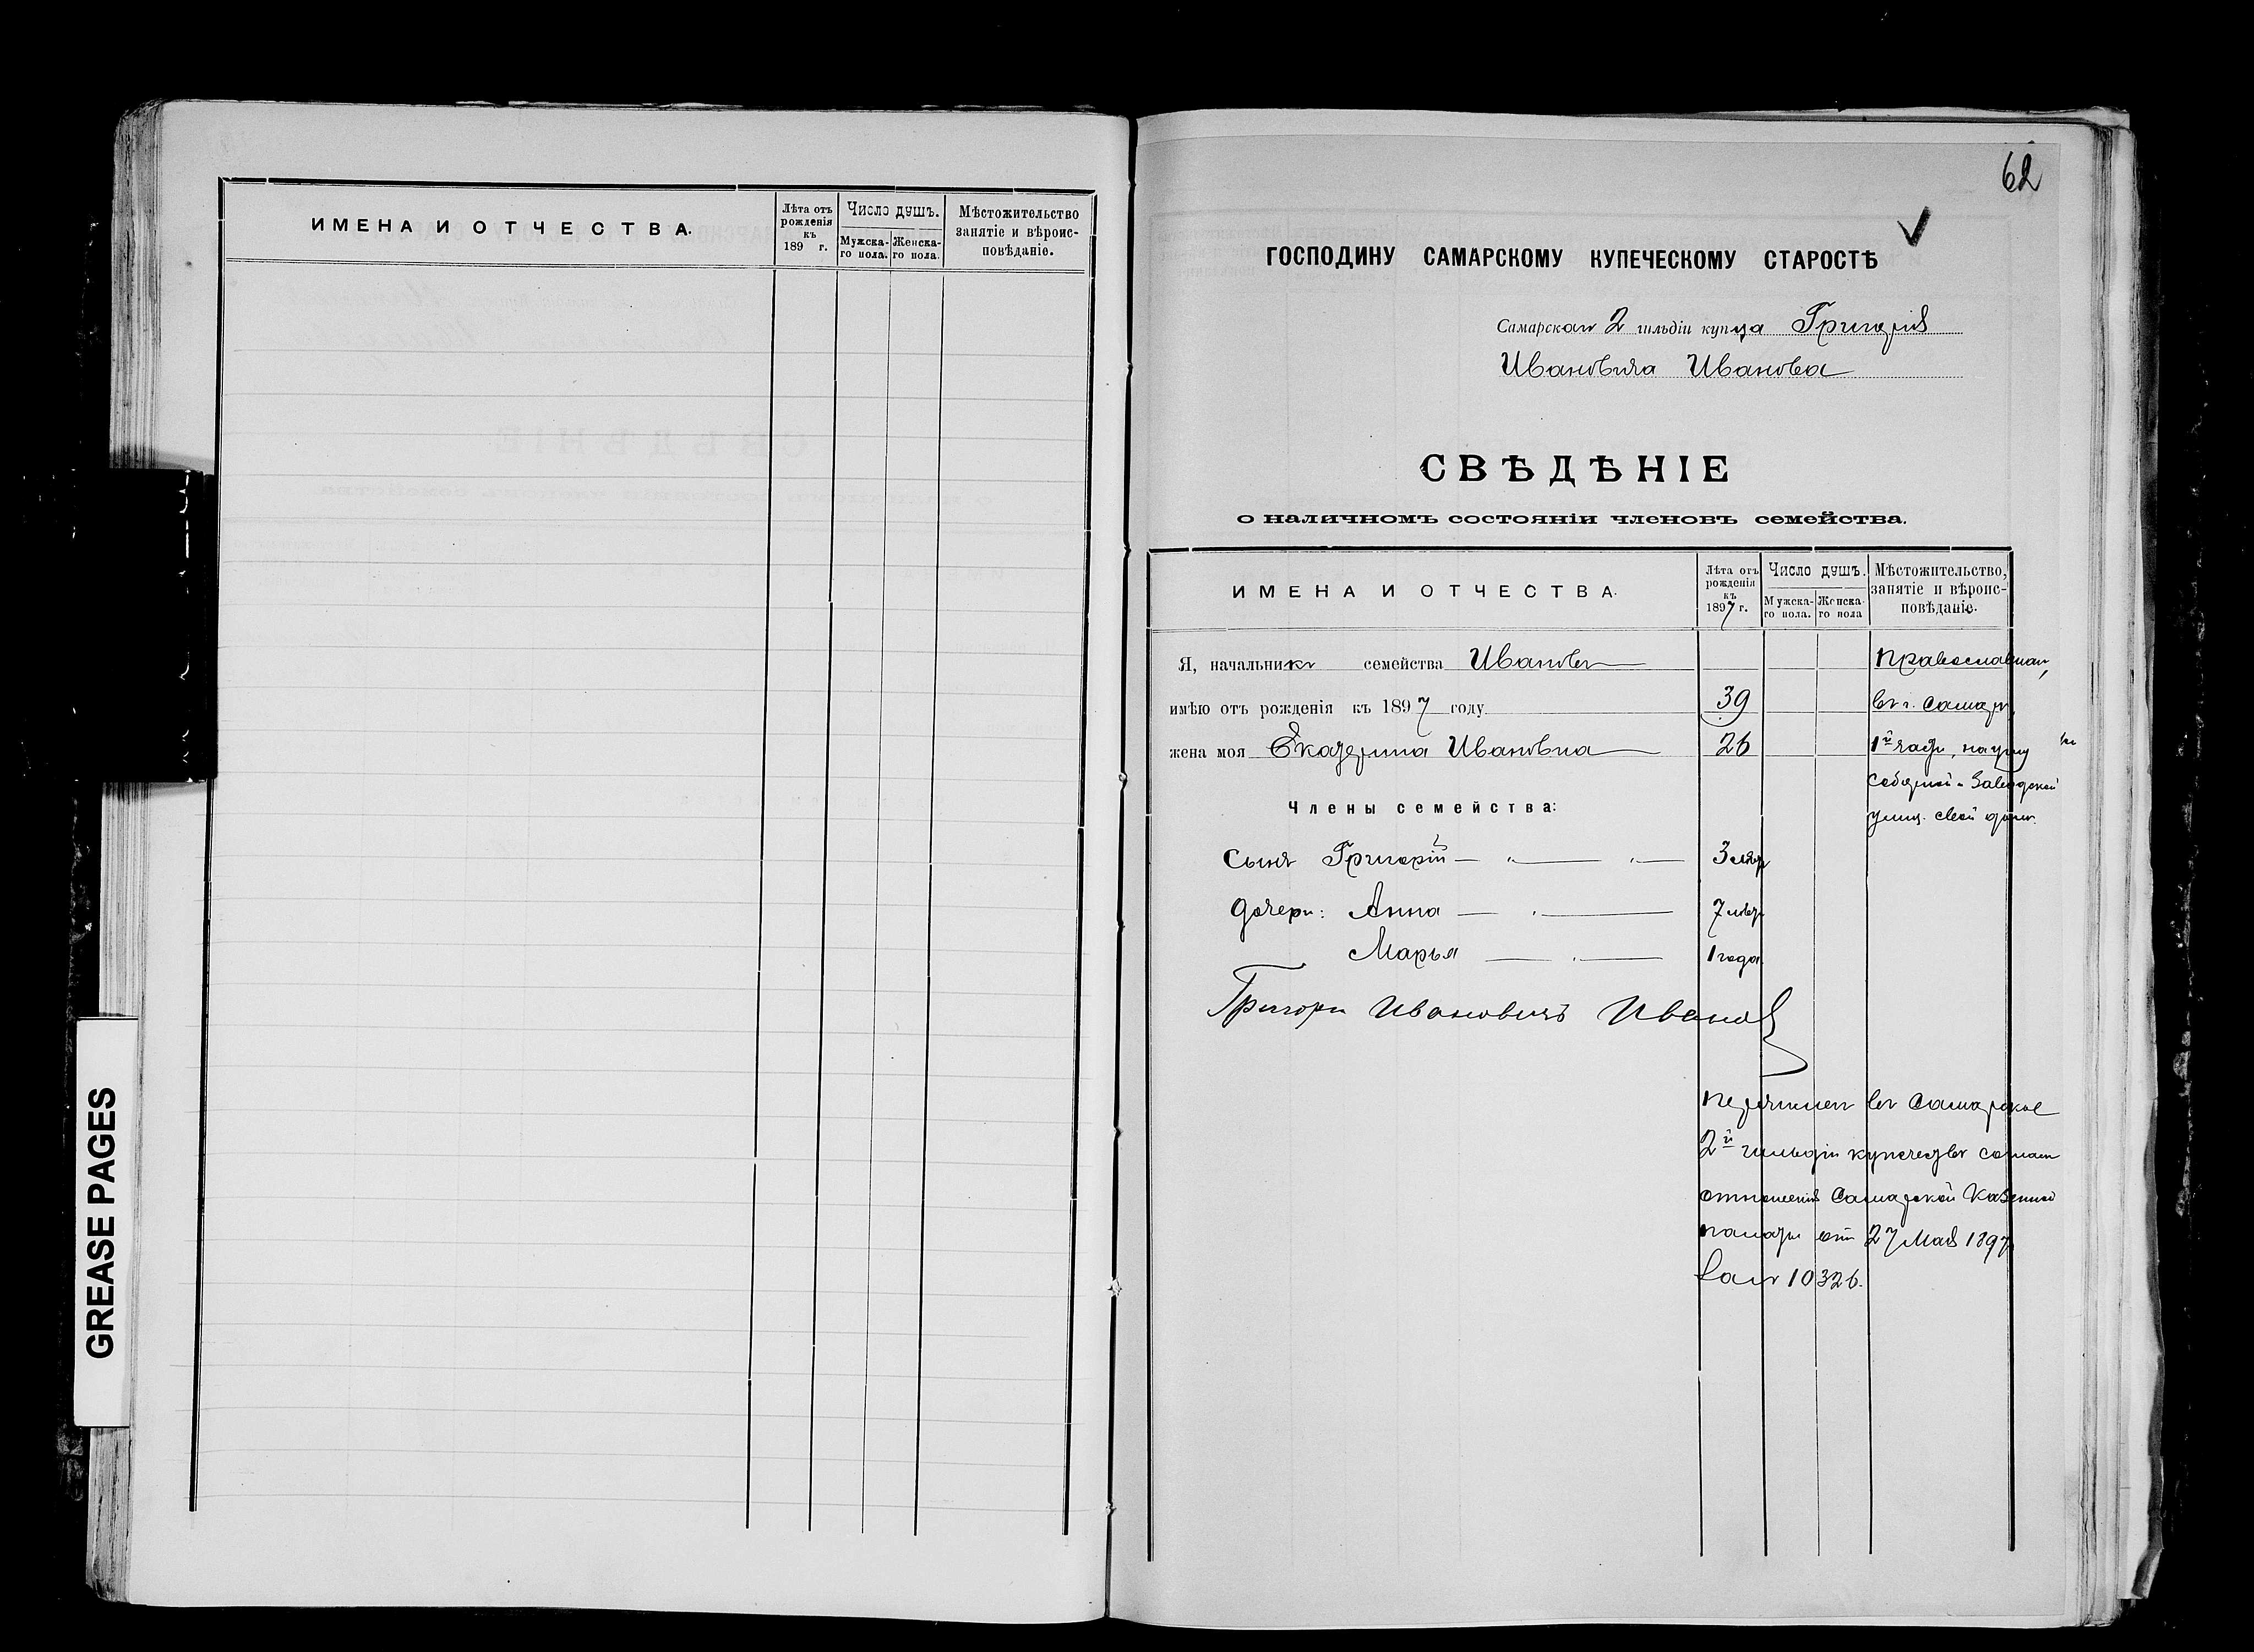 ИМЕНА И ОТЧЕСТВА.
Лѣта отъ рожденія къ 189 г.
Число душъ.
Мужска-го пола.
Женска-го пола.
Мѣстожительство занятіе и вѣроис-повѣданіе.
GREASE PAGES
62
ГОСПОДИНУ САМАРСКОМУ КУПЕЧЕСКОМУ СТАРОСТѢ
Самарскаго 2 гильдіи купца Григорія
Ивановича Иванова
СВѢДѢНІЕ
о наличномъ состояніи членовъ семейства.
ИМЕНА И ОТЧЕСТВА.
Лѣта отъ рожденія къ 1897 г.
Число душъ.
Мужска-го пола.
Женска-го пола
Мѣстожительство, занятіе и вѣроис-повѣданіе.
Я, начальникъ семейства Ивановъ
имѣю отъ рожденія къ 1897 году 39 въ г. Самарѣ,
жена моя Екатерина Ивановна 26 1й части, на углу
Соборной и Заводской
улиц. свой домъ.
Члены семейства:
Сынъ Григорій 3 лѣтъ
Дочери: Анна 7 лѣтъ
Марья 1 года
Григори Ивановичъ Иванов
Перечисленъ въ Самарское
2й гильдіи купечество согласно
отношенія Самарской Казенной
палаты отъ 27 Мая 1897
за № 10326.